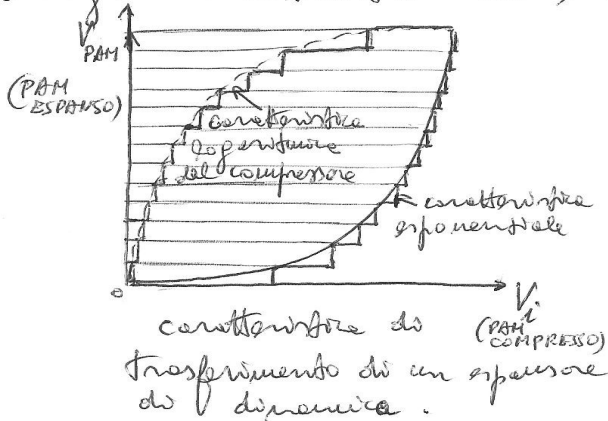 V PAM
(PAM
ESPANSO)
caratteristica
logaritmica
del compressore
caratteristica
esponenziale
0
Vi
(PAM
COMPRESSO)
caratteristica di
trasferimento di un espansore
di dinamica.